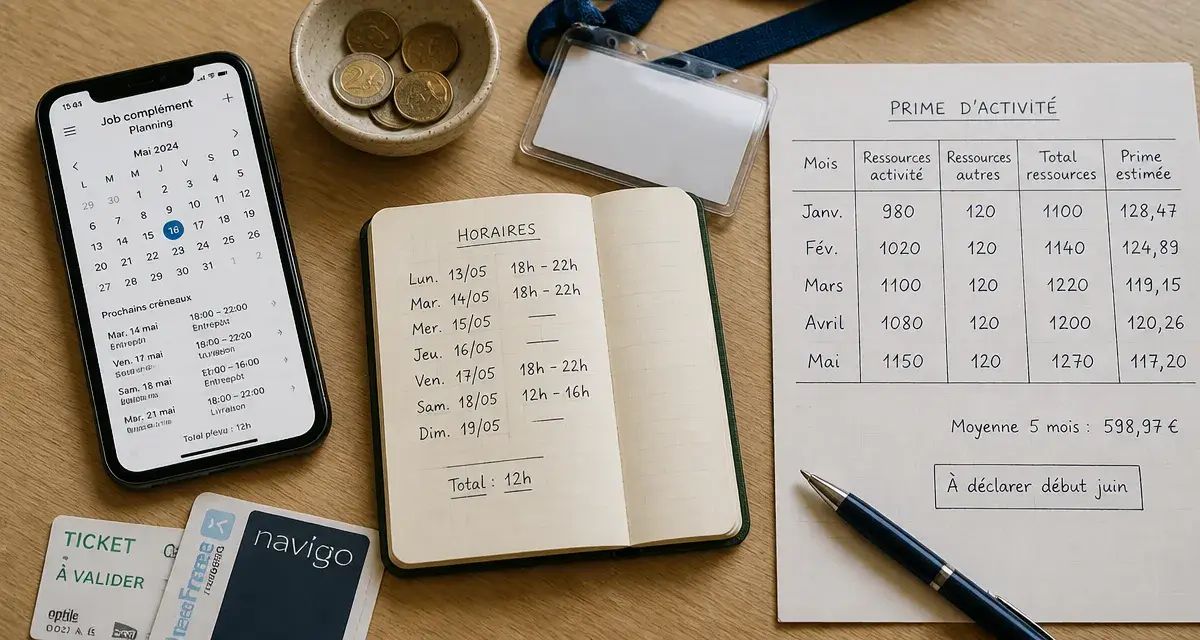 15
Job complément
Planning
Mai 2024
L M M J V S D
29 30 1 2 3 4 5
6 7 8 9 10 11 12
13 14 15 16 17 18 19
20 21 22 23 24 25 26
27 28 29 30 31 1 2
Prochains créneaux
Mar. 14 mai 18:00 – 22:00
Entrepôt
Ven. 17 mai
Sam. 18 mai
Entrepôt
Mar. 21 mai 18:00 – 22:00
Livraison
12h
HORAIRES
Lun. 13/05 18h – 22h
Mar. 14/05 18h – 22h
Mer. 15/05 —
Jeu. 16/05 —
Ven. 17/05 18h – 22h
Sam. 18/05 12h – 16h
Dim. 19/05 —
Total : 12h
PRIME D'ACTIVITÉ
Mois Ressources activité Ressources autres Total ressources Prime estimée
Janv. 980 120 1100 128,47
Fév. 1020 120 1140 124,89
Mars 1100 120 1220 119,15
Avril 1080 120 1200 120,26
Mai 1150 120 1270 117,20
Moyenne 5 mois : 598,97 €
À déclarer début juin
TICKET
À VALIDER
navigo